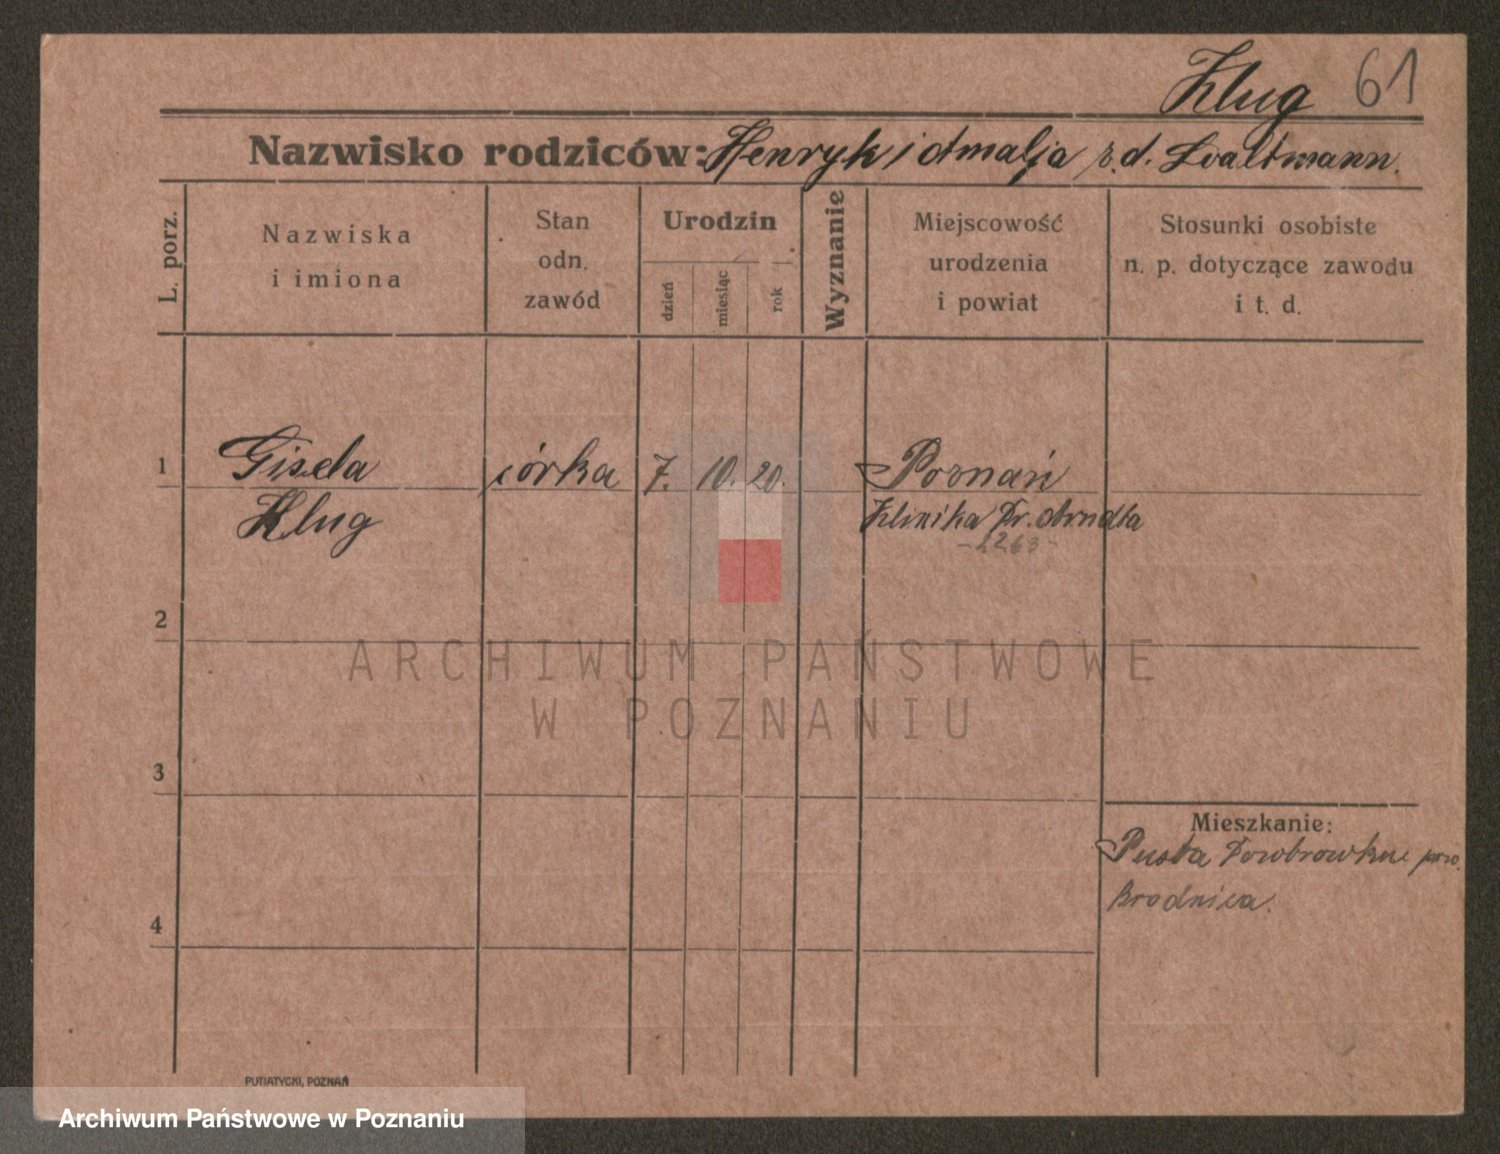 Klug 61
Nazwisko rodziców: Henryk i Amalja z.d. Waltmann.
L. porz.
Nazwiska
i imiona
Stan
odn.
zawód
Urodzin
dzień
miesiąc
rok
Wyznanie
Miejscowość
urodzenia
i powiat
Stosunki osobiste
n. p. dotyczące zawodu
i t. d.
1 Gisela córka 7. 10. 20. Poznań
Klug Klinika Dr.
- 2263 -
2
ARCHIWUM PAŃSTWOWE
W POZNANIU
3
Mieszkanie:
Pusta pow.
Brodnica.
4
PUTIATYCKI, POZNAŃ
Archiwum Państwowe w Poznaniu